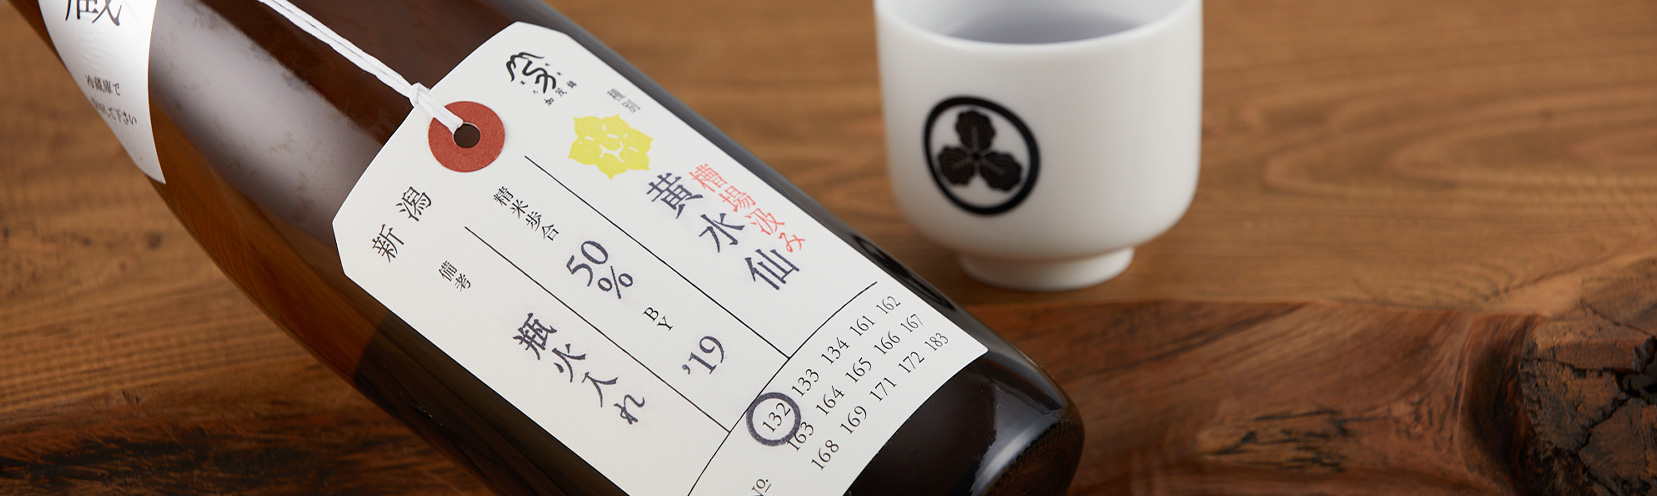 蔵
冷蔵庫で
して下さい
加茂錦
種別
槽場汲み
黄水仙
精米歩合
50%
BY
'19
新潟
備考
瓶火入れ
132 133 134 161 162
163 164 165 166 167
168 169 171 172 183
No.